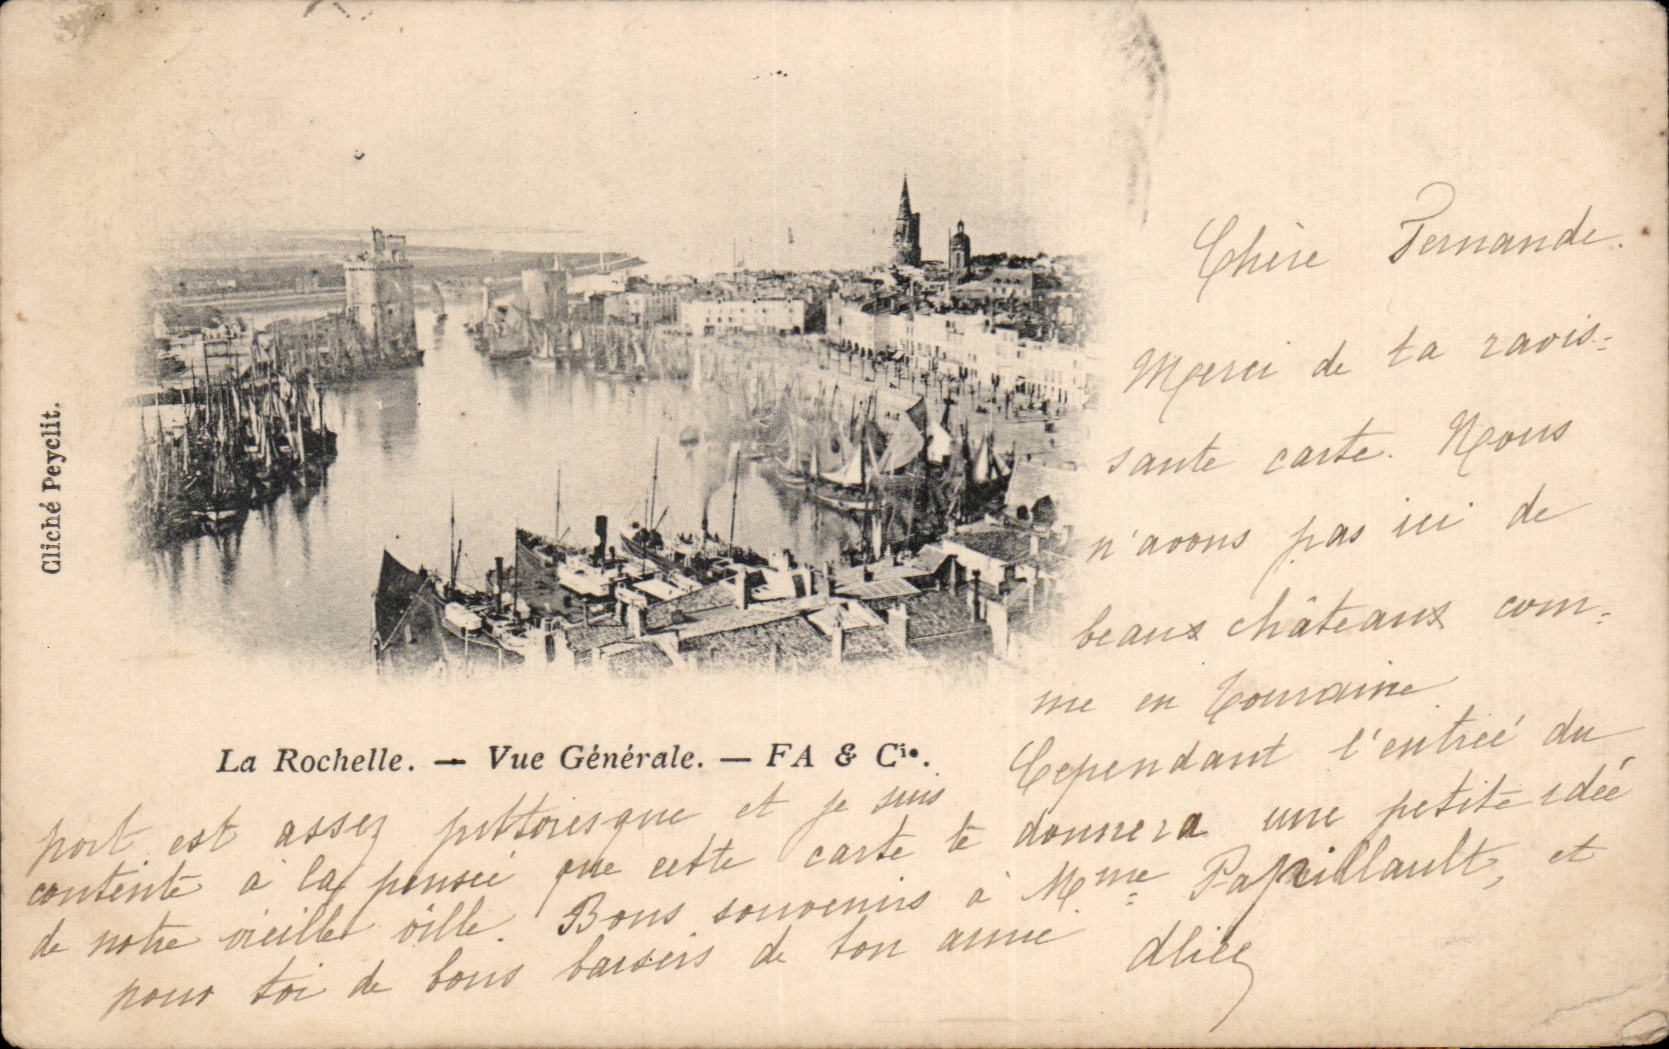 Cliché Peyclit.
La Rochelle. — Vue Générale. — FA & Cie.
Chère Fernande.
Merci de ta ravis=
sante carte. Nous
n'avons pas ici de
beaux châteaux com=
me en Touraine
Cependant l'entrée du
port est assez pittoresque et je suis
contente à la pensée que cette carte te donnera une petite idée
de notre vieille ville. Bons souvenirs à Mme Papillault, et
pour toi de bons baisers de ton amie Alice